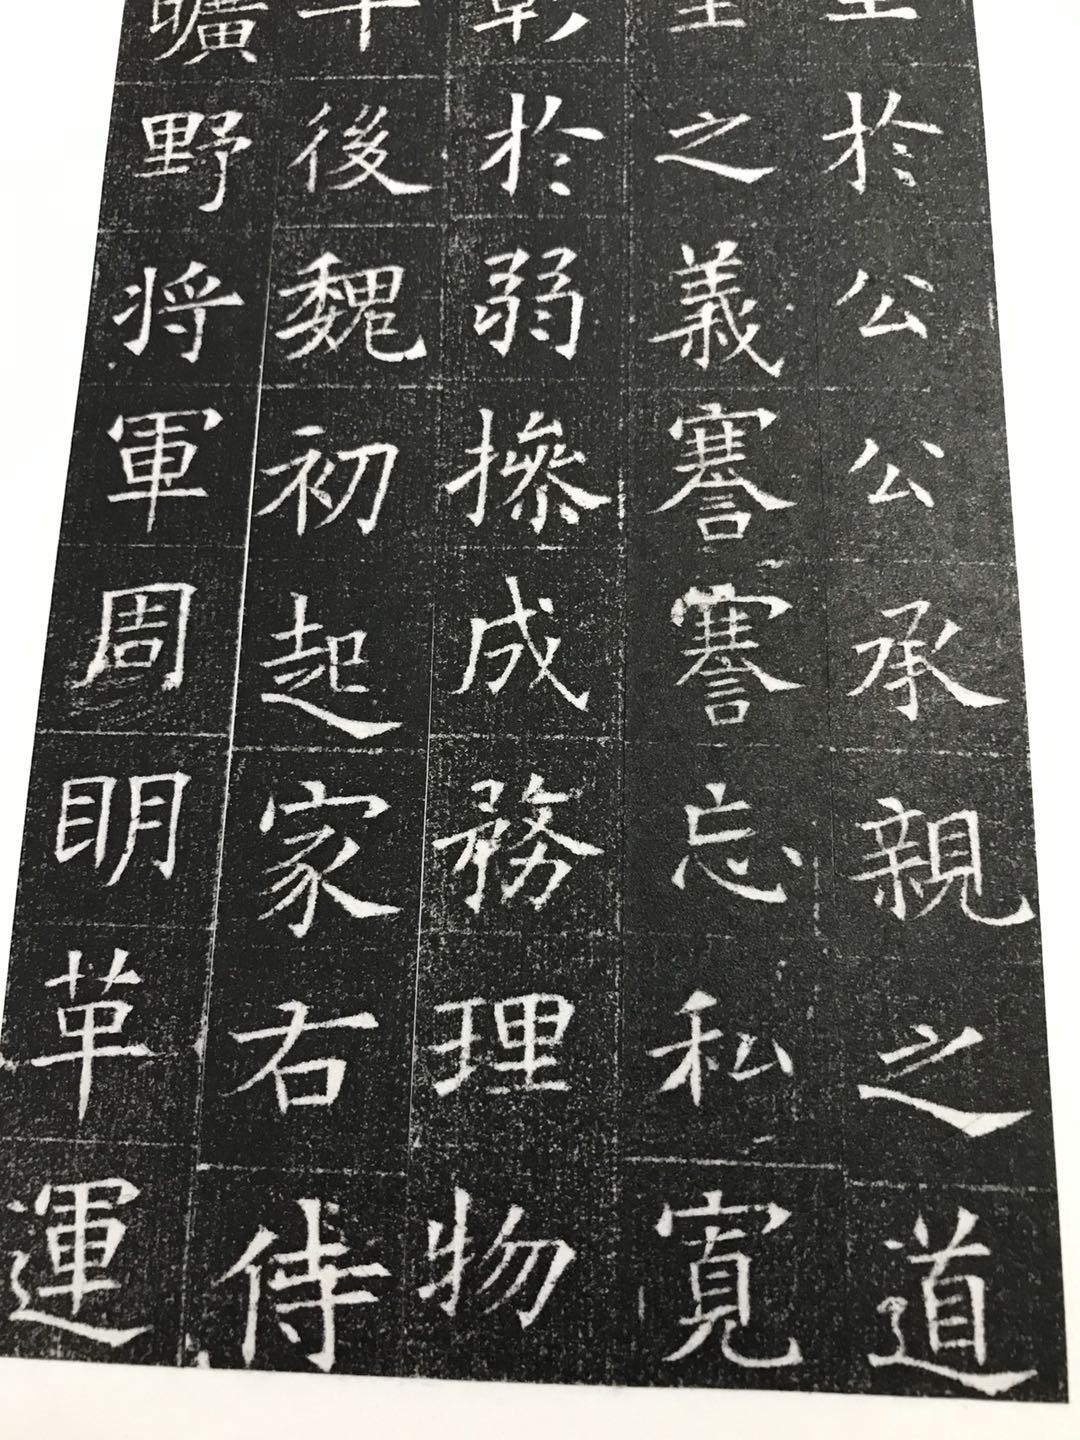 於公公承親之道
之義謇謇忘私寬
彰於弱操成務理物
後魏初起家右侍
曠野将軍周眀革運